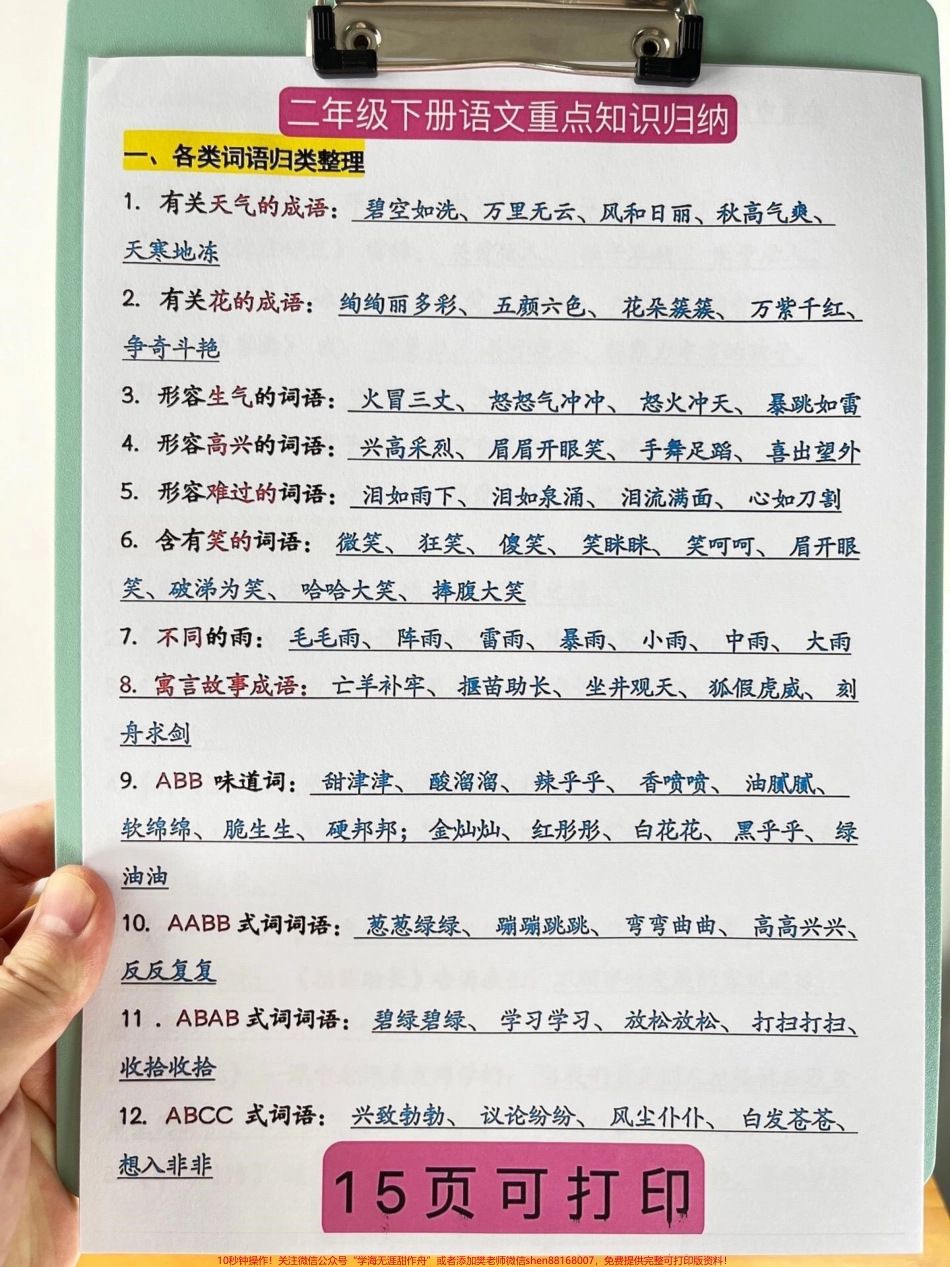 二年级下册语文重点知识归纳
一、各类词语归类整理
1. 有关天气的成语：碧空如洗、万里无云、风和日丽、秋高气爽、
天寒地冻
2. 有关花的成语：绚绚丽多彩、五颜六色、花朵簇簇、万紫千红、
争奇斗艳
3. 形容生气的词语：火冒三丈、怒怒气冲冲、怒火冲天、暴跳如雷
4. 形容高兴的词语：兴高采烈、眉眉开眼笑、手舞足蹈、喜出望外
5. 形容难过的词语：泪如雨下、泪如泉涌、泪流满面、心如刀割
6. 含有笑的词语：微笑、狂笑、傻笑、笑眯眯、笑呵呵、眉开眼
笑、破涕为笑、哈哈大笑、捧腹大笑
7. 不同的雨：毛毛雨、阵雨、雷雨、暴雨、小雨、中雨、大雨
8. 寓言故事成语：亡羊补牢、揠苗助长、坐井观天、狐假虎威、刻
舟求剑
9. ABB 味道词：甜津津、酸溜溜、辣乎乎、香喷喷、油腻腻、
软绵绵、脆生生、硬邦邦；金灿灿、红彤彤、白花花、黑乎乎、绿
油油
10. AABB 式词词语：葱葱绿绿、蹦蹦跳跳、弯弯曲曲、高高兴兴、
反反复复
11．ABAB 式词词语：碧绿碧绿、学习学习、放松放松、打扫打扫、
收拾收拾
12. ABCC 式词语：兴致勃勃、议论纷纷、风尘仆仆、白发苍苍、
想入非非
15页可打印
10秒钟操作！关注微信公众号“学海无涯甜作舟”或者添加樊老师微信shen88168007，免费提供完整可打印版资料！